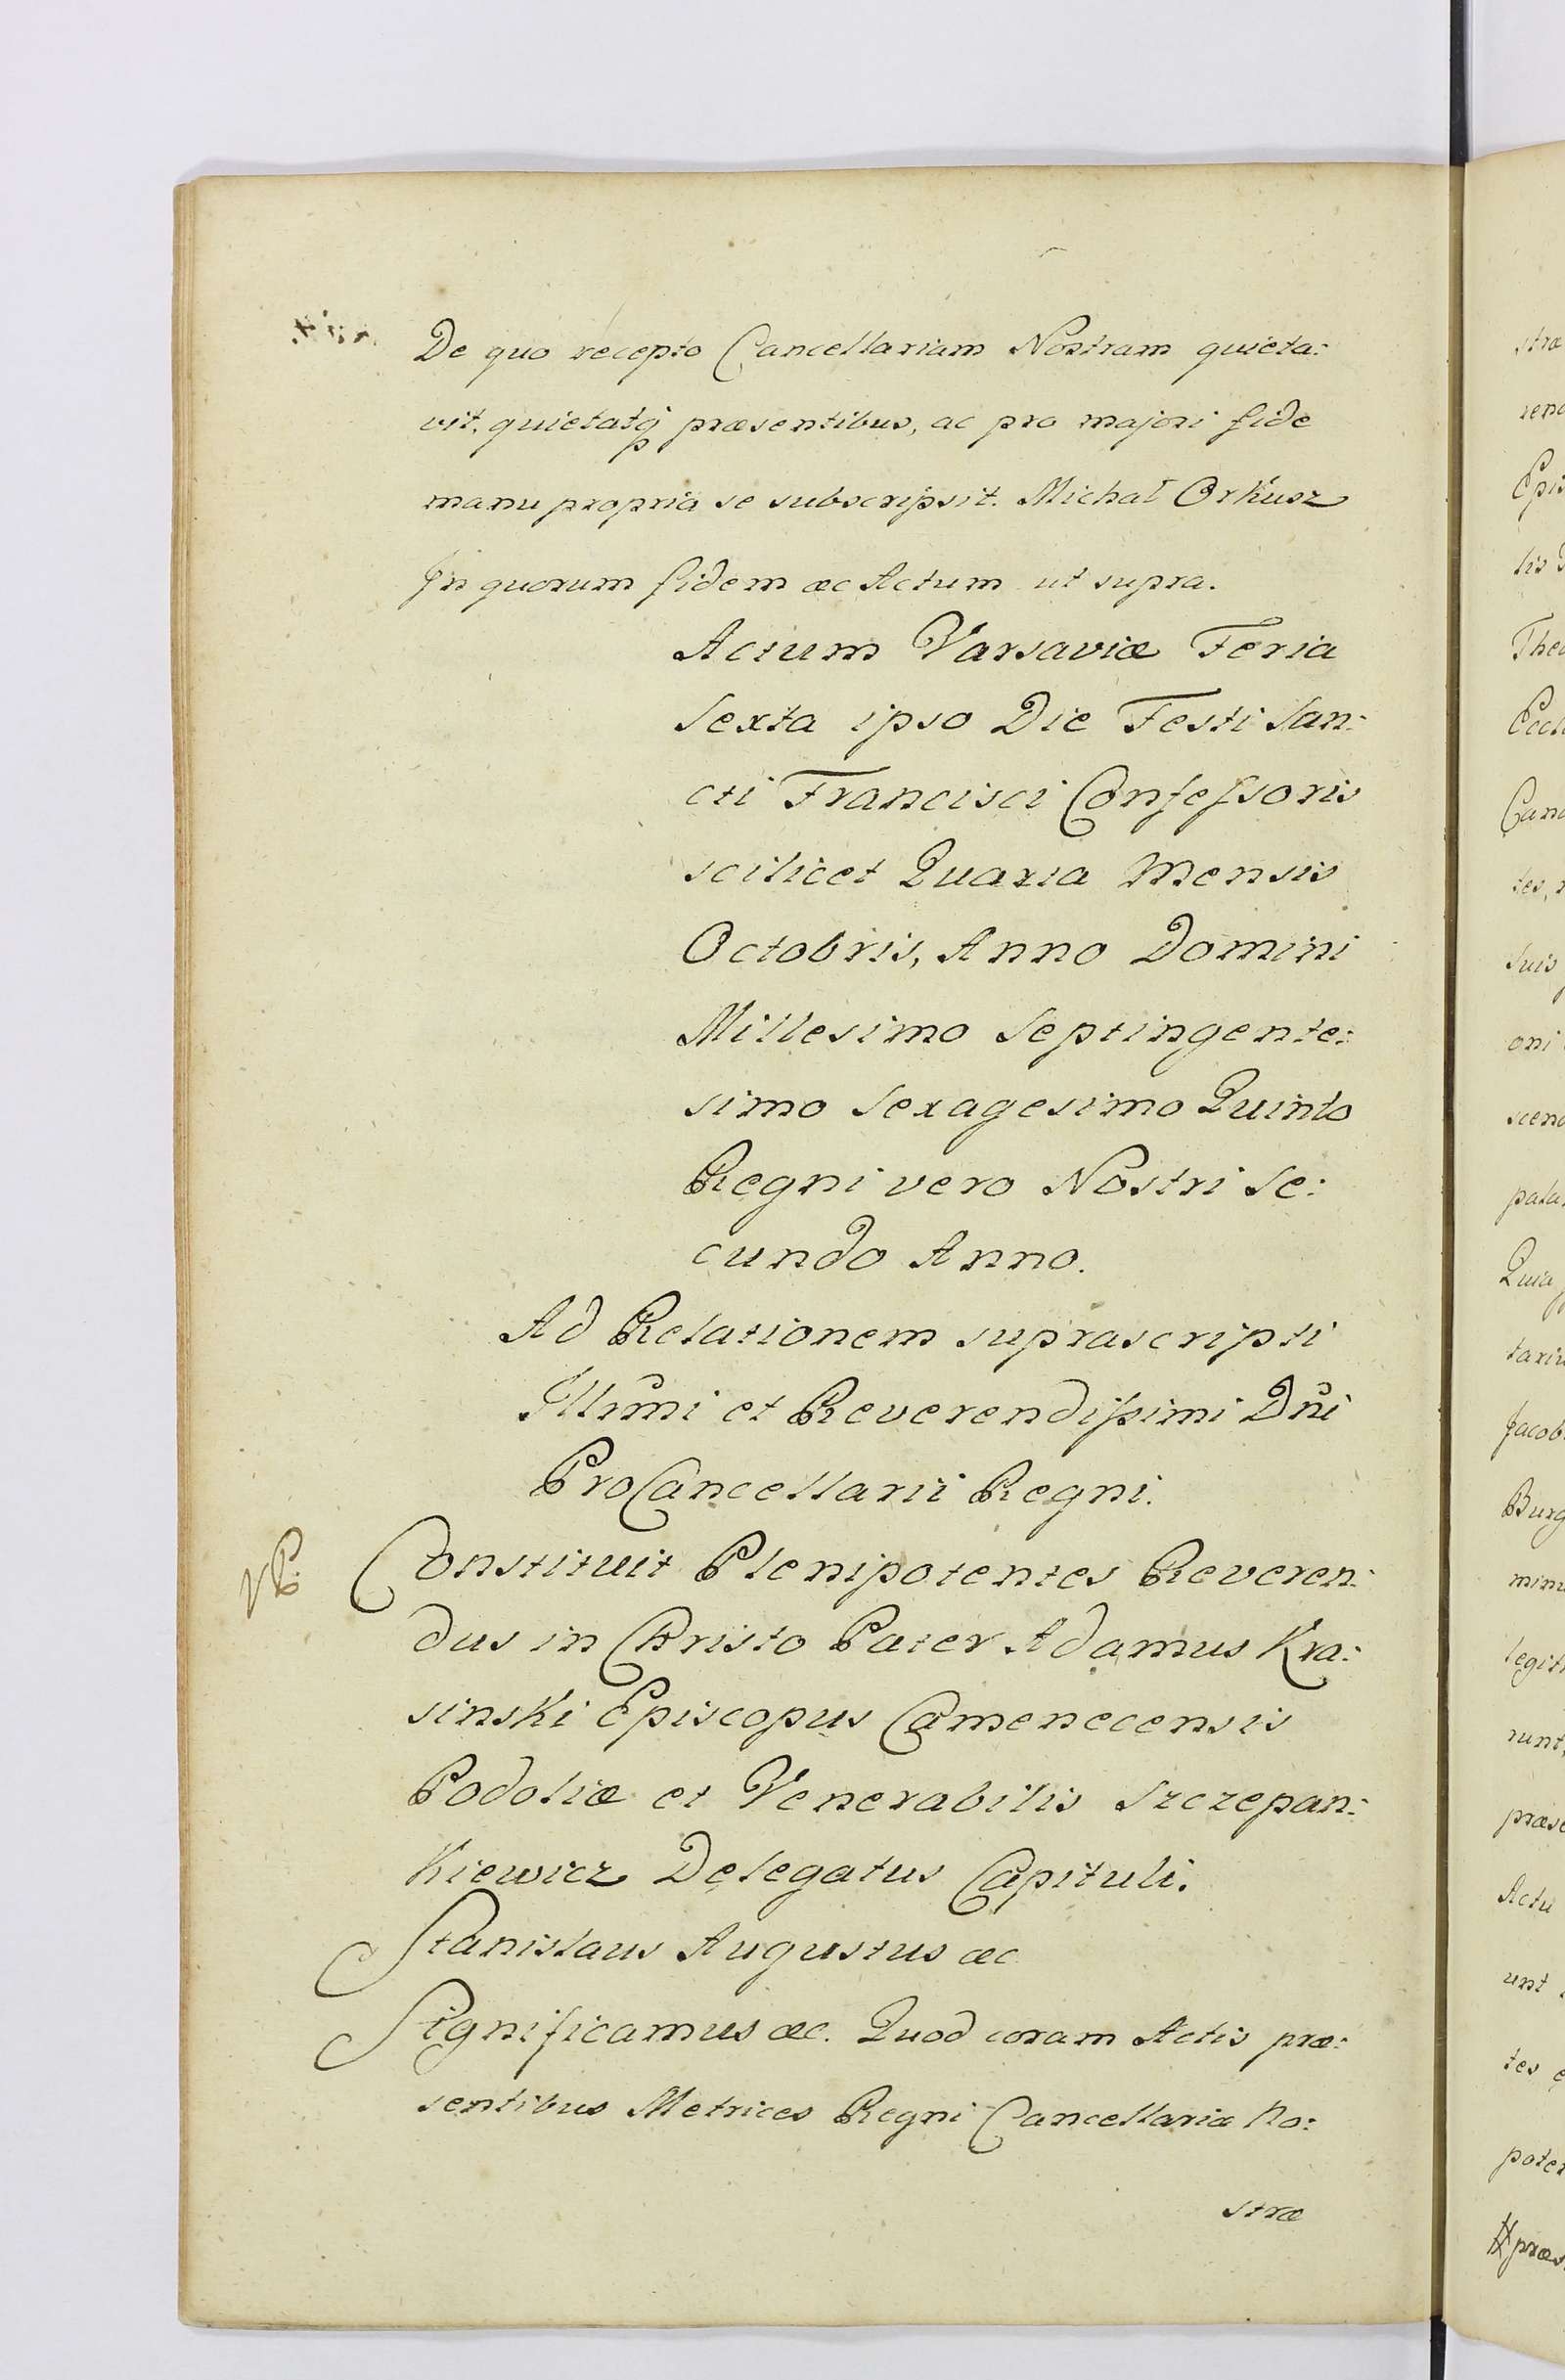 De quo recepto Cancellariam Nostram quieta:
vit, quietatq̃ præsentibus, ac pro majori fide
manu propria se subscripsit. Michał Orkusz
In quorum fidem æc Actum ut supra.
Actum Varsaviæ Feria
Sexta ipso Die Festi San:
cti Francisci Confessoris
scilicet Quarta Mensis
Octobris, Anno Domini
Millesimo Septingente:
simo Sexagesimo Quinto
Regni vero Nostri Se:
cundo Anno.
Ad Relationem suprascripti
Illmi et Reverendissimi Dni
ProCancellarii Regni.
Constituit Plenipotentes Reveren:
dus in Christo Pater Adamus Kra:
sinski Episcopus Camenecensis
Podoliæ et Venerabilis Szczepan:
Kiewicz Delegatus Capituli.
Stanislaus Augustus æc
Significamus æc. Quod coram Actis præ:
sentibus Metrices Regni Cancellariæ No:
stræ